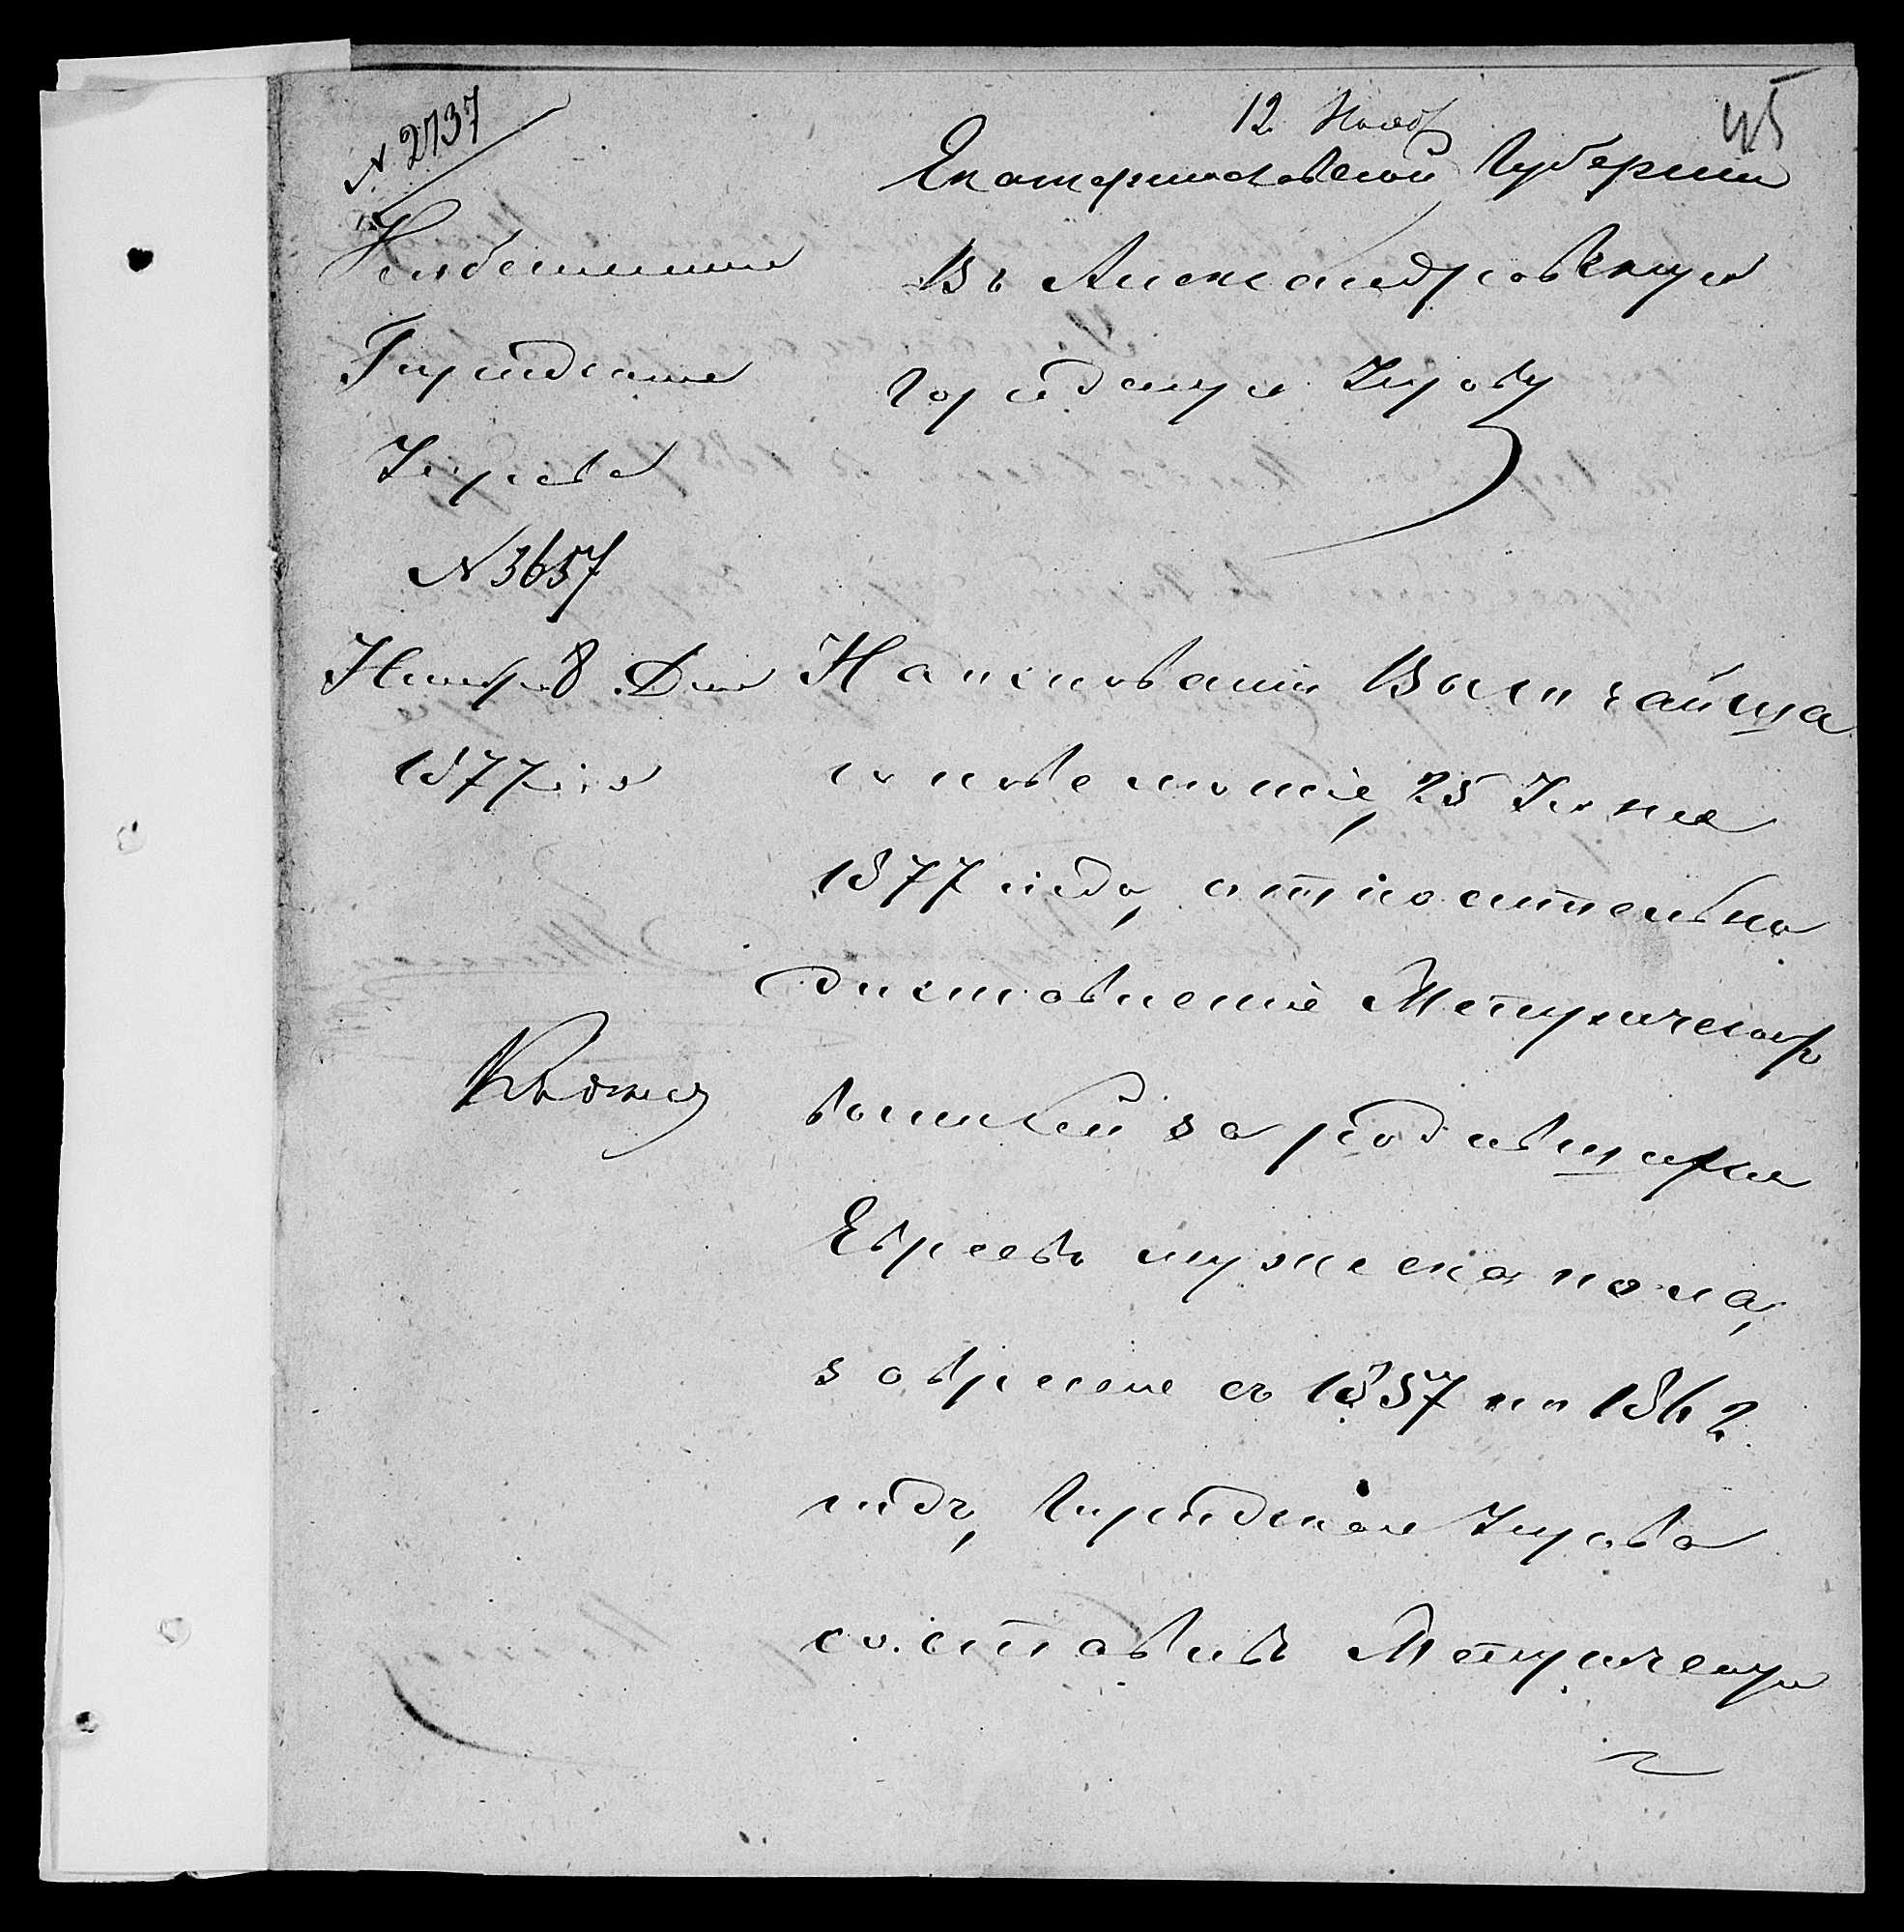 № 2737
12 Нояб
45
Екатеринославской Губернии
Въ Александровскую
Городскую Управу
Городская
Управа
№ 3657
Ноября 8 Дня
1877 го
На основании Высочайша
го повеления, 25 Июня
1877 года, относительно
доставления Метрических
за родившихся
Евреевъ мужеска пола,
за время съ 1857 по 1862
годъ, Городская Управа
составивъ Метрическую